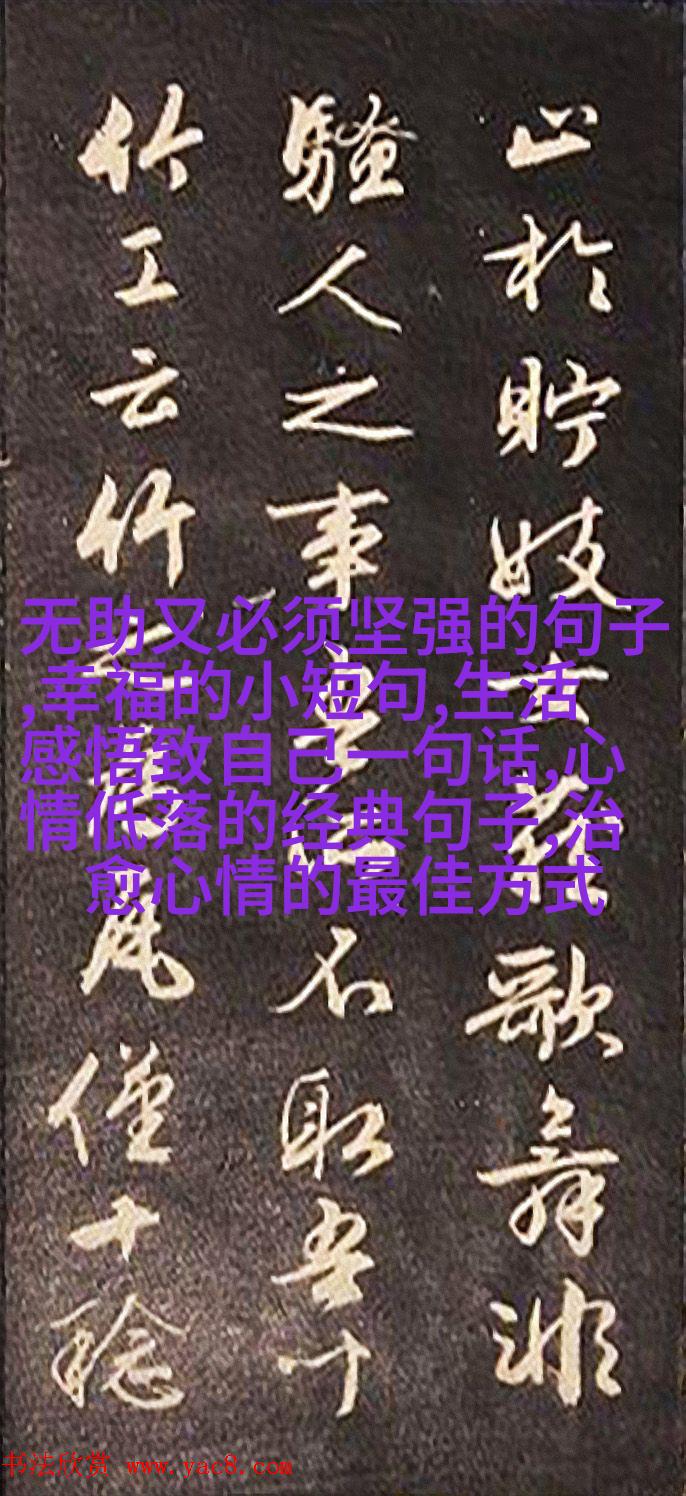 止於貯妓女藏歌舞非
騷人之事吾所不取吾
竹工云竹之為瓦僅十稔
无助又必须坚强的句子
,幸福的小短句,生活
感悟致自己一句话,心
情低落的经典句子,治
愈心情的最佳方式
书法欣赏 www.yac8.com